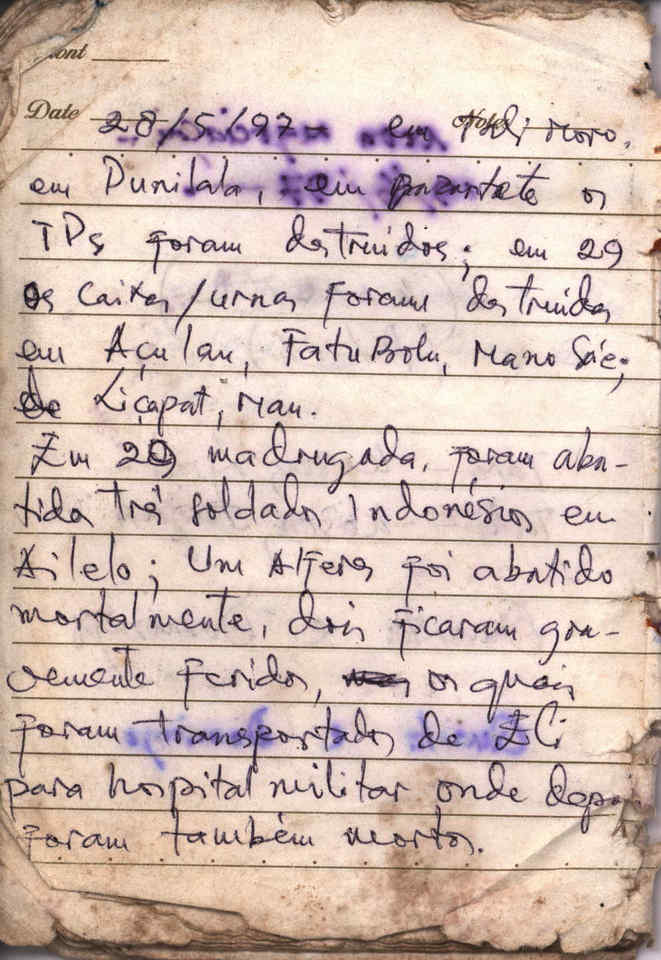 ont
Date 28/5/97 - em Notes
em Punilala, em os
TPs foram destruidos; em 29
os Caixas/urnas foram destruidas
em Açulau, FatuBolu, Mano Sáe;
de Liçapat, Mau.
Em 29 madrugada, foram aba-
tidos três soldados Indonésios em
Ailelo; Um Alferes foi abatido
mortalmente, dois ficaram gra-
vemente feridos, os quais
foram transportados de
para hospital militar onde depo
foram também mortos.